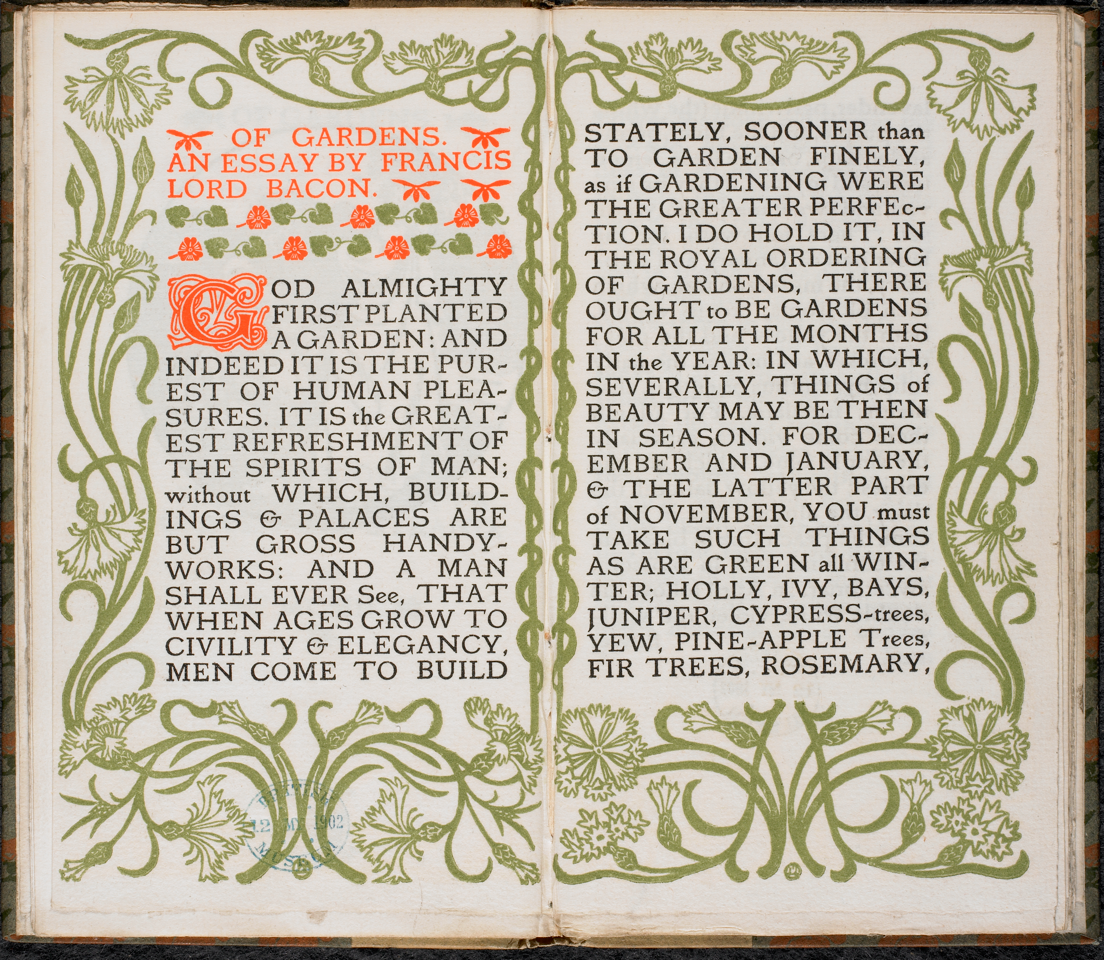 OF GARDENS.
AN ESSAY BY FRANCIS
LORD BACON.
GOD ALMIGHTY
FIRST PLANTED
A GARDEN: AND
INDEED IT IS THE PUR-
EST OF HUMAN PLEA-
SURES. IT IS the GREAT-
EST REFRESHMENT OF
THE SPIRITS OF MAN;
without WHICH, BUILD-
INGS & PALACES ARE
BUT GROSS HANDY-
WORKS: AND A MAN
SHALL EVER See, THAT
WHEN AGES GROW TO
CIVILITY & ELEGANCY,
MEN COME TO BUILD
STATELY, SOONER than
TO GARDEN FINELY,
as if GARDENING WERE
THE GREATER PERFEc-
TION. I DO HOLD IT, IN
THE ROYAL ORDERING
OF GARDENS, THERE
OUGHT to BE GARDENS
FOR ALL THE MONTHS
IN the YEAR: IN WHICH,
SEVERALLY, THINGS of
BEAUTY MAY BE THEN
IN SEASON. FOR DEC-
EMBER AND JANUARY,
& THE LATTER PART
of NOVEMBER, YOU must
TAKE SUCH THINGS
AS ARE GREEN all WIN-
TER; HOLLY, IVY, BAYS,
JUNIPER, CYPRESS-trees,
YEW, PINE-APPLE Trees,
FIR TREES, ROSEMARY,
1902
MUSEUM